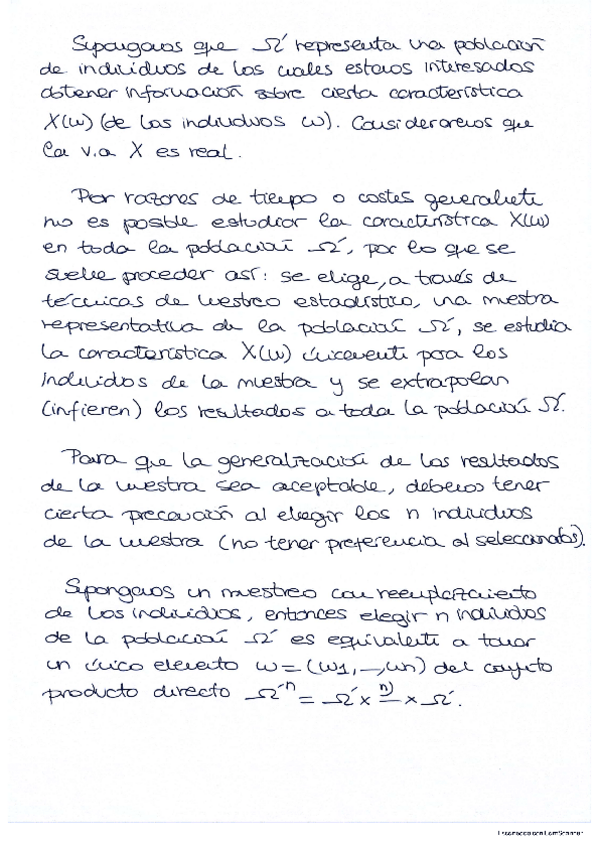 Supongamos que Ω' representa una población
de individuos de los cuales estamos interesados
obtener información sobre cierta característica
X(ω) (de los individuos ω). Consideraremos que
la v.a X es real.
Por razones de tiempo o costes generalmente
no es posible estudiar la característica X(ω)
en toda la población Ω', por lo que se
suele proceder así: se elige, a través de
técnicas de muestreo estadístico, una muestra
representativa de la población Ω', se estudia
la característica X(ω) únicamente para los
individuos de la muestra y se extrapolan
(infieren) los resultados a toda la población Ω'.
Para que la generalización de los resultados
de la muestra sea aceptable, debemos tener
cierta precaución al elegir los n individuos
de la muestra (no tener preferencia al seleccionarlos).
Supongamos un muestreo con reemplazamiento
de los individuos, entonces elegir n individuos
de la población Ω' es equivalente a tomar
un único elemento ω = (ω1, —, ωn) del conjunto
producto directo Ω'ⁿ = Ω' x n) x Ω'.
Escaneado con CamScanner